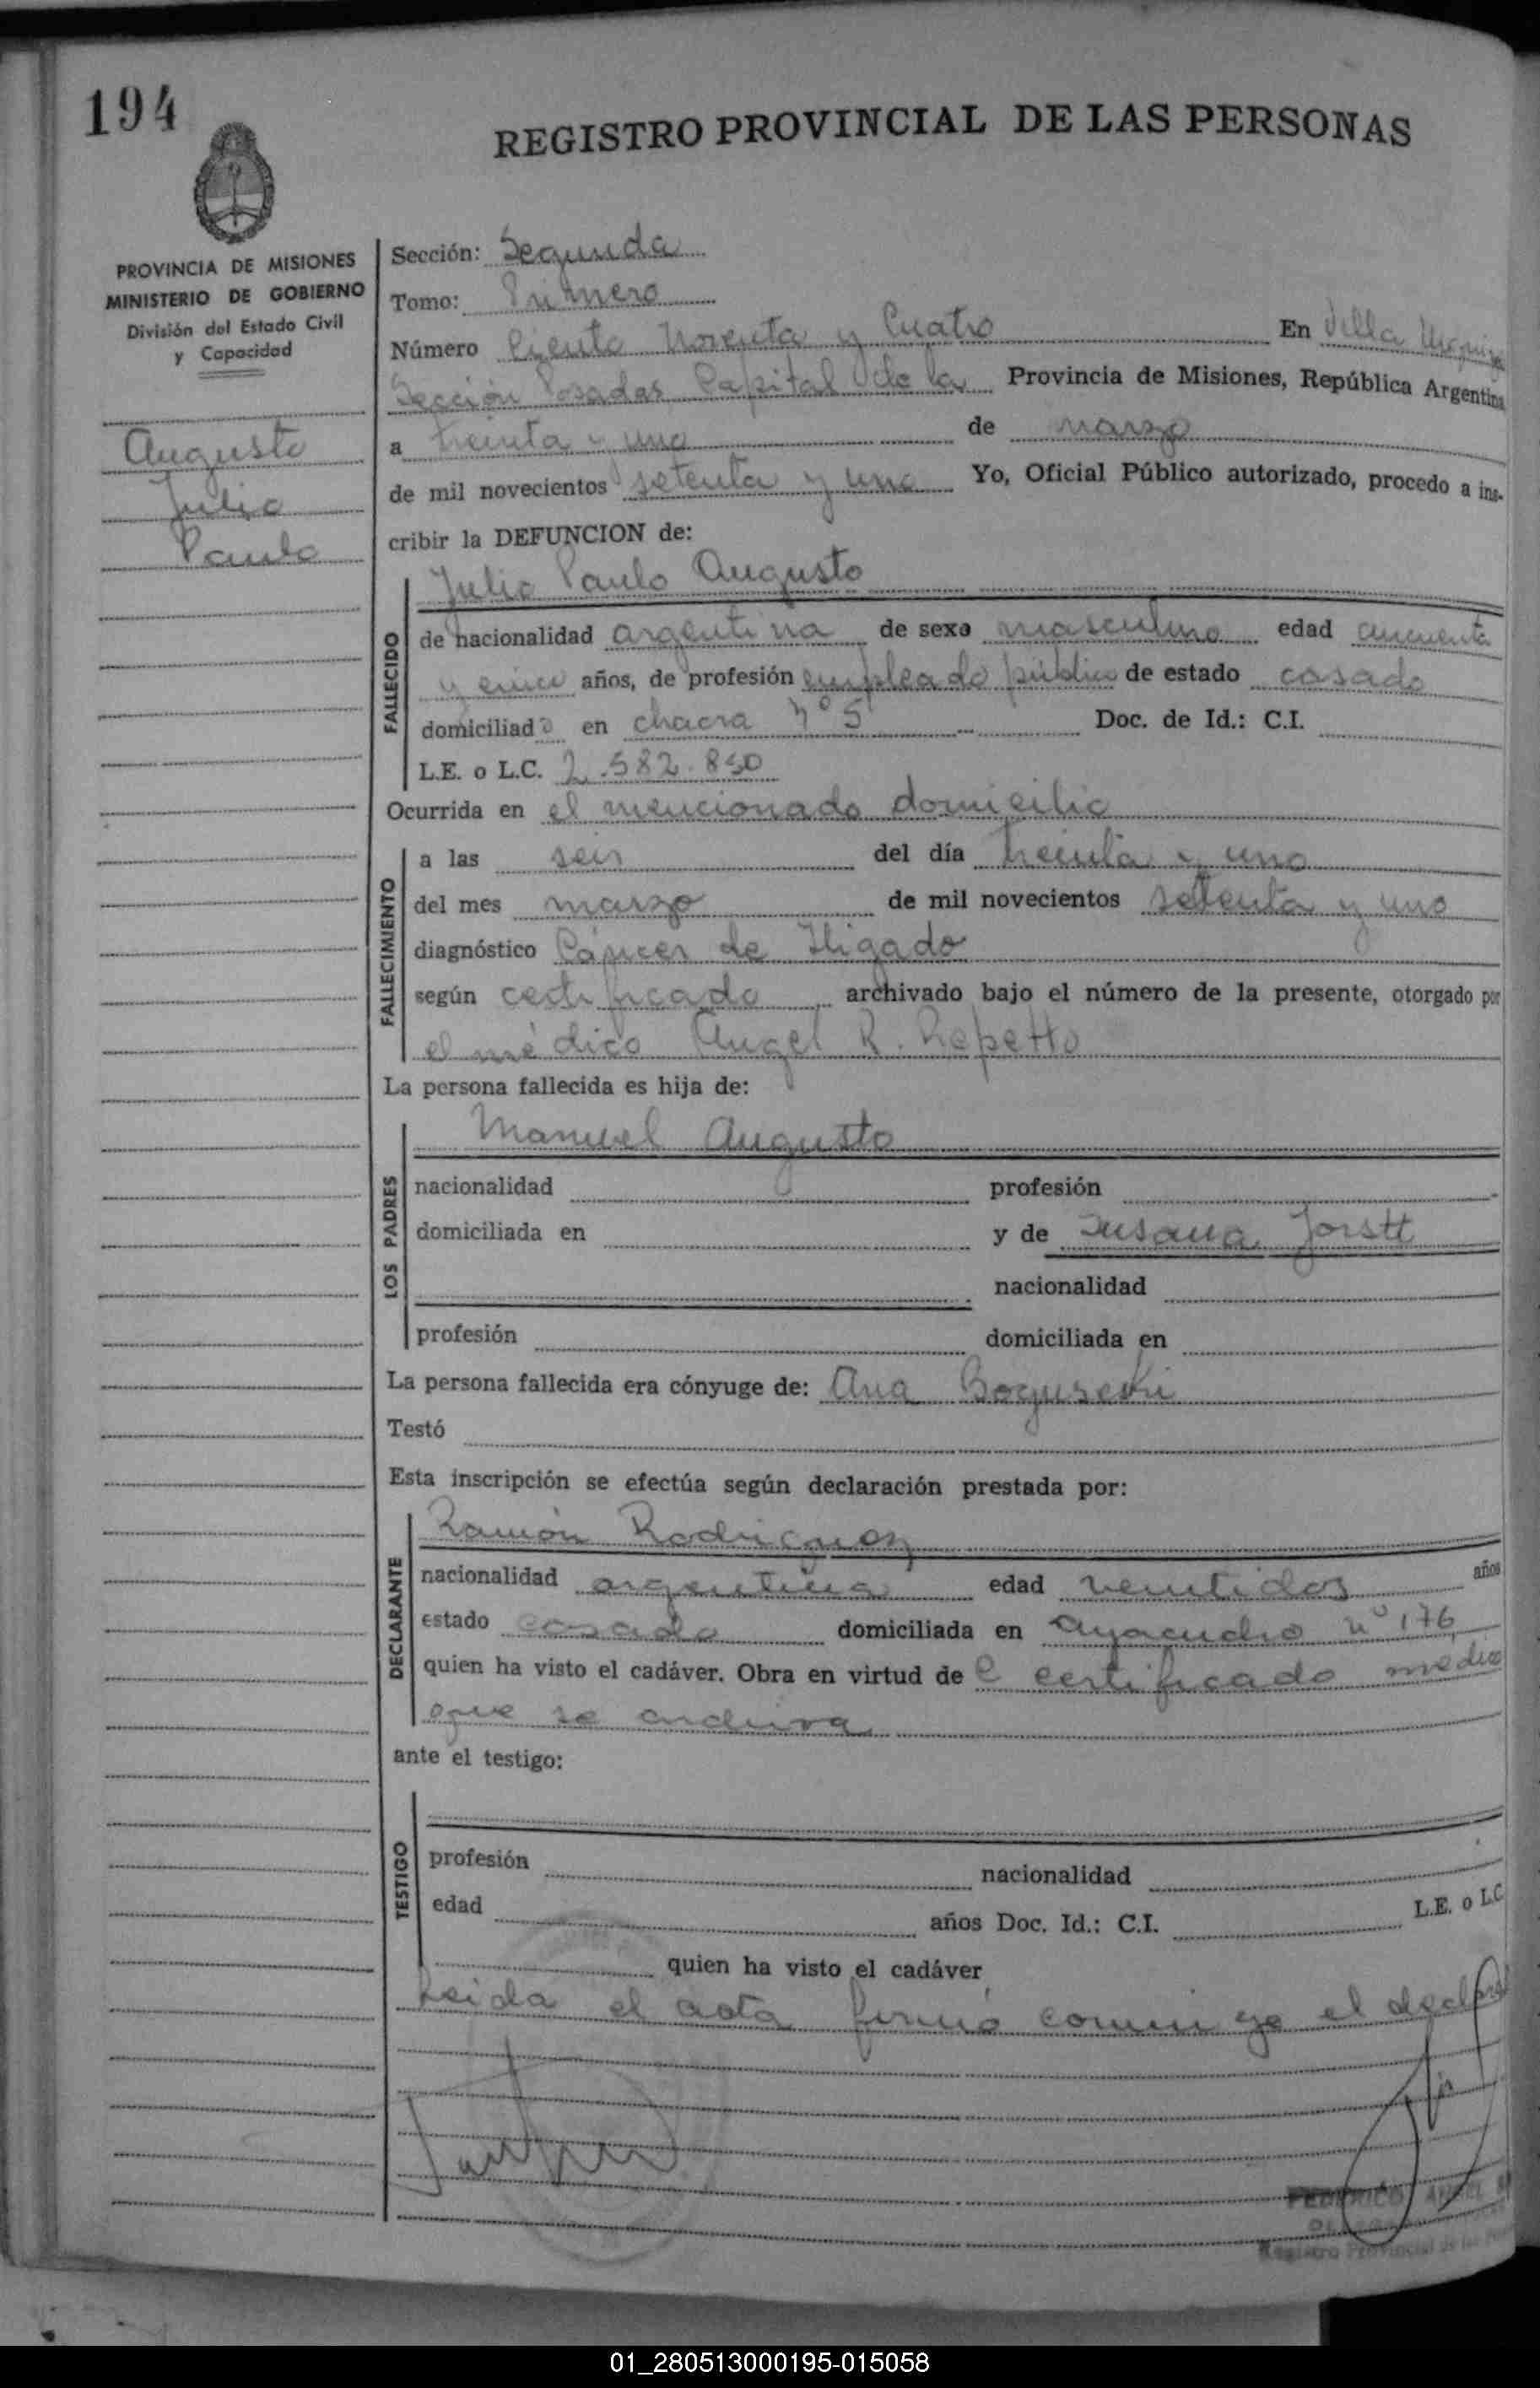 194
REGISTRO PROVINCIAL DE LAS PERSONAS
PROVINCIA DE MISIONES
MINISTERIO DE GOBIERNO
División del Estado Civil
y Capacidad
Augusto
Julio
Paulo
Sección: Segunda
Tomo: Primero
Número Ciento Noventa y Cuatro En Villa Urquiza
Sección Posadas Capital de la Provincia de Misiones, República Argentina
a treinta y uno de marzo
de mil novecientos setenta y uno Yo, Oficial Público autorizado, procedo a ins-
cribir la DEFUNCION de:
Julio Paulo Augusto
FALLECIDO
de nacionalidad argentina de sexo masculino edad cincuenta
y cinco años, de profesión empleado público de estado casado
domiciliado en chacra nº 5 Doc. de Id.: C.I.
L.E. o L.C. 2.582.850
Ocurrida en el mencionado domicilio
FALLECIMIENTO
a las seis del día treinta y uno
del mes marzo de mil novecientos setenta y uno
diagnóstico Cáncer de Higado
según certificado archivado bajo el número de la presente, otorgado por
el médico Angel R. Repetto
La persona fallecida es hija de:
LOS PADRES
Manuel Augusto
nacionalidad profesión
domiciliada en y de Susana Jorstt
nacionalidad
profesión domiciliada en
La persona fallecida era cónyuge de: Ana
Testó
Esta inscripción se efectúa según declaración prestada por:
DECLARANTE
Ramón Rodriguez
nacionalidad argentina edad veintidos años
estado casado domiciliada en Ayacucho nº 176
quien ha visto el cadáver. Obra en virtud de certificado medico
que se archiva
ante el testigo:
TESTIGO
profesión nacionalidad
edad años Doc. Id.: C.I. L.E. o L.C
quien ha visto el cadáver
Leida el acta firmó conmigo el
FEDERICO ANGEL
Registro Provincial de las
01_280513000195-015058